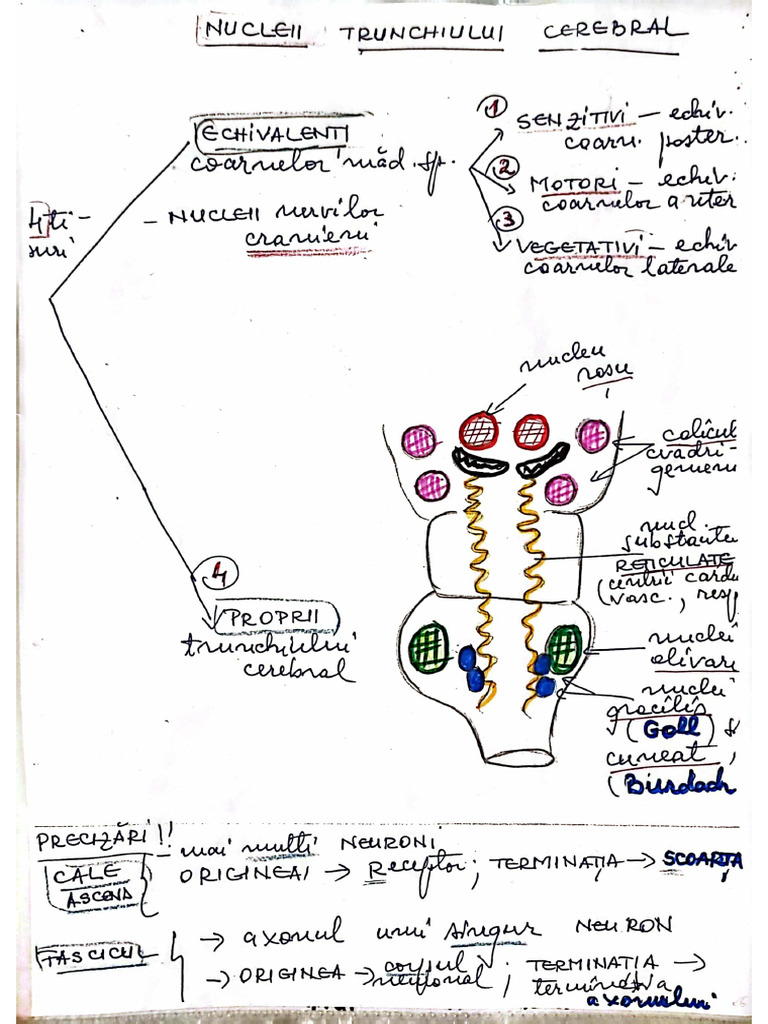 NUCLEII TRUNCHIULUI CEREBRAL
ECHIVALENTI
coarnelor măd. sp.
1
SENZITIVI – echiv.
coarn. poster.
2
MOTORI – echiv.
coarnelor anter
3
VEGETATIVI – echiv
coarnelor laterale
4 ti-
suri
– NUCLEII nervilor
cranieni
nucleu
rosu
colicul
cvadri-
gemenu
nucl.
substante
RETICULATE
(centrii card
vasc., resp
4
PROPRII
trunchiului
cerebral
nuclei
olivari
nuclei
gracilis
(Goll) s
cuneat,
(Burdach
PRECIZĂRI!!
CALE
ASCEND
– mai multi NEURONI
ORIGINEA → Receptor; TERMINAȚIA → SCOARȚA
FASCICUL
→ axonul unui singur NEURON
→ ORIGINEA → corpul
neuronal; TERMINATIA →
terminatia
axonului